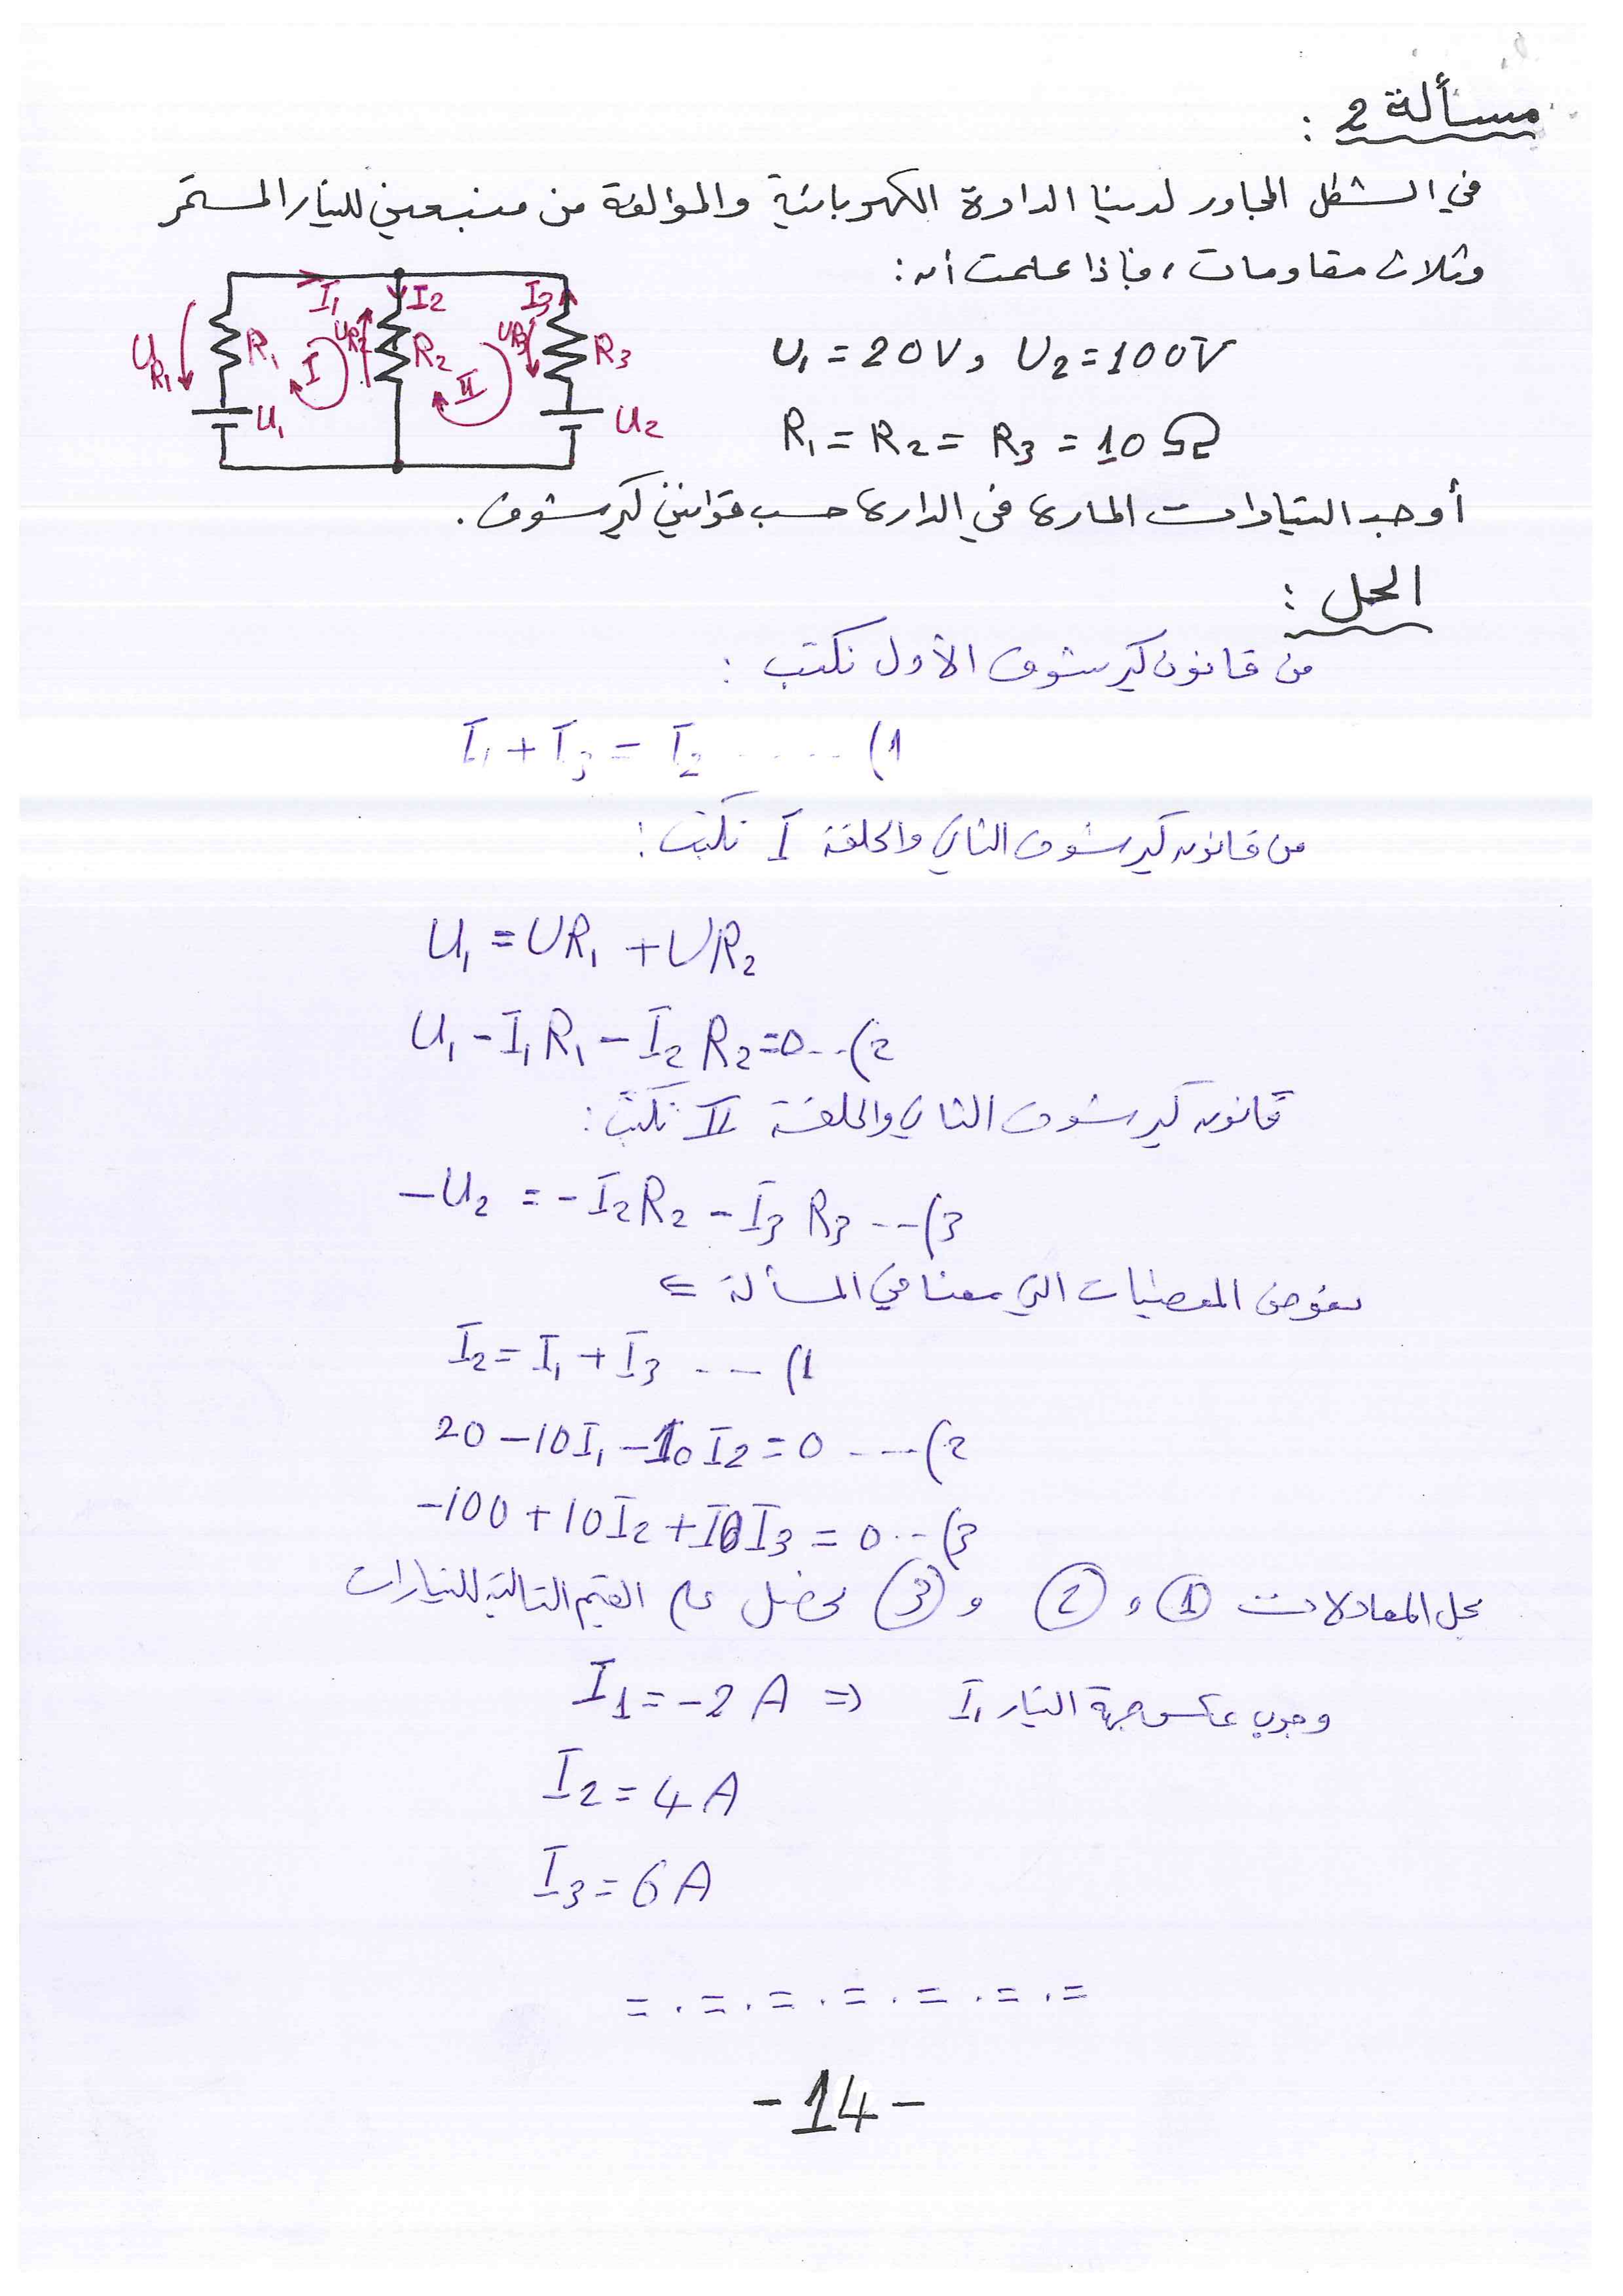 مسألة 2 :
في الشكل المجاور لدينا الدارة الكهربائية والمؤلفة من منبعين للتيار المستمر
وثلاث مقاومات، فإذا علمت أن:
U₁ = 20V و U₂ = 100V
R₁ = R₂ = R₃ = 10 Ω
I₁ I₂ I₃
U_R₁ R₁ I U_R₂ R₂ II U_R₃ R₃
U₁ U₂
أوجد التيارات المارة في الدارة حسب قوانين كيرشوف.
الحل :
من قانون كيرشوف الأول نكتب :
I₁ + I₃ = I₂ ..... (1
من قانون كيرشوف الثاني والحلقة I نكتب :
U₁ = UR₁ + UR₂
U₁ - I₁R₁ - I₂R₂ = 0 ... (2
قانون كيرشوف الثاني والحلقة II نكتب :
-U₂ = -I₂R₂ - I₃R₃ ... (3
نعوض المعطيات التي معنا في المسألة ⇐
I₂ = I₁ + I₃ ... (1
20 - 10I₁ - 10I₂ = 0 ... (2
-100 + 10I₂ + 10I₃ = 0 ... (3
بحل المعادلات ① و ② و ③ نحصل على القيم التالية للتيارات
I₁ = -2 A ⇒ وجوب عكس جهة التيار I₁
I₂ = 4 A
I₃ = 6 A
= . = . = . = . = . = . =
- 14 -